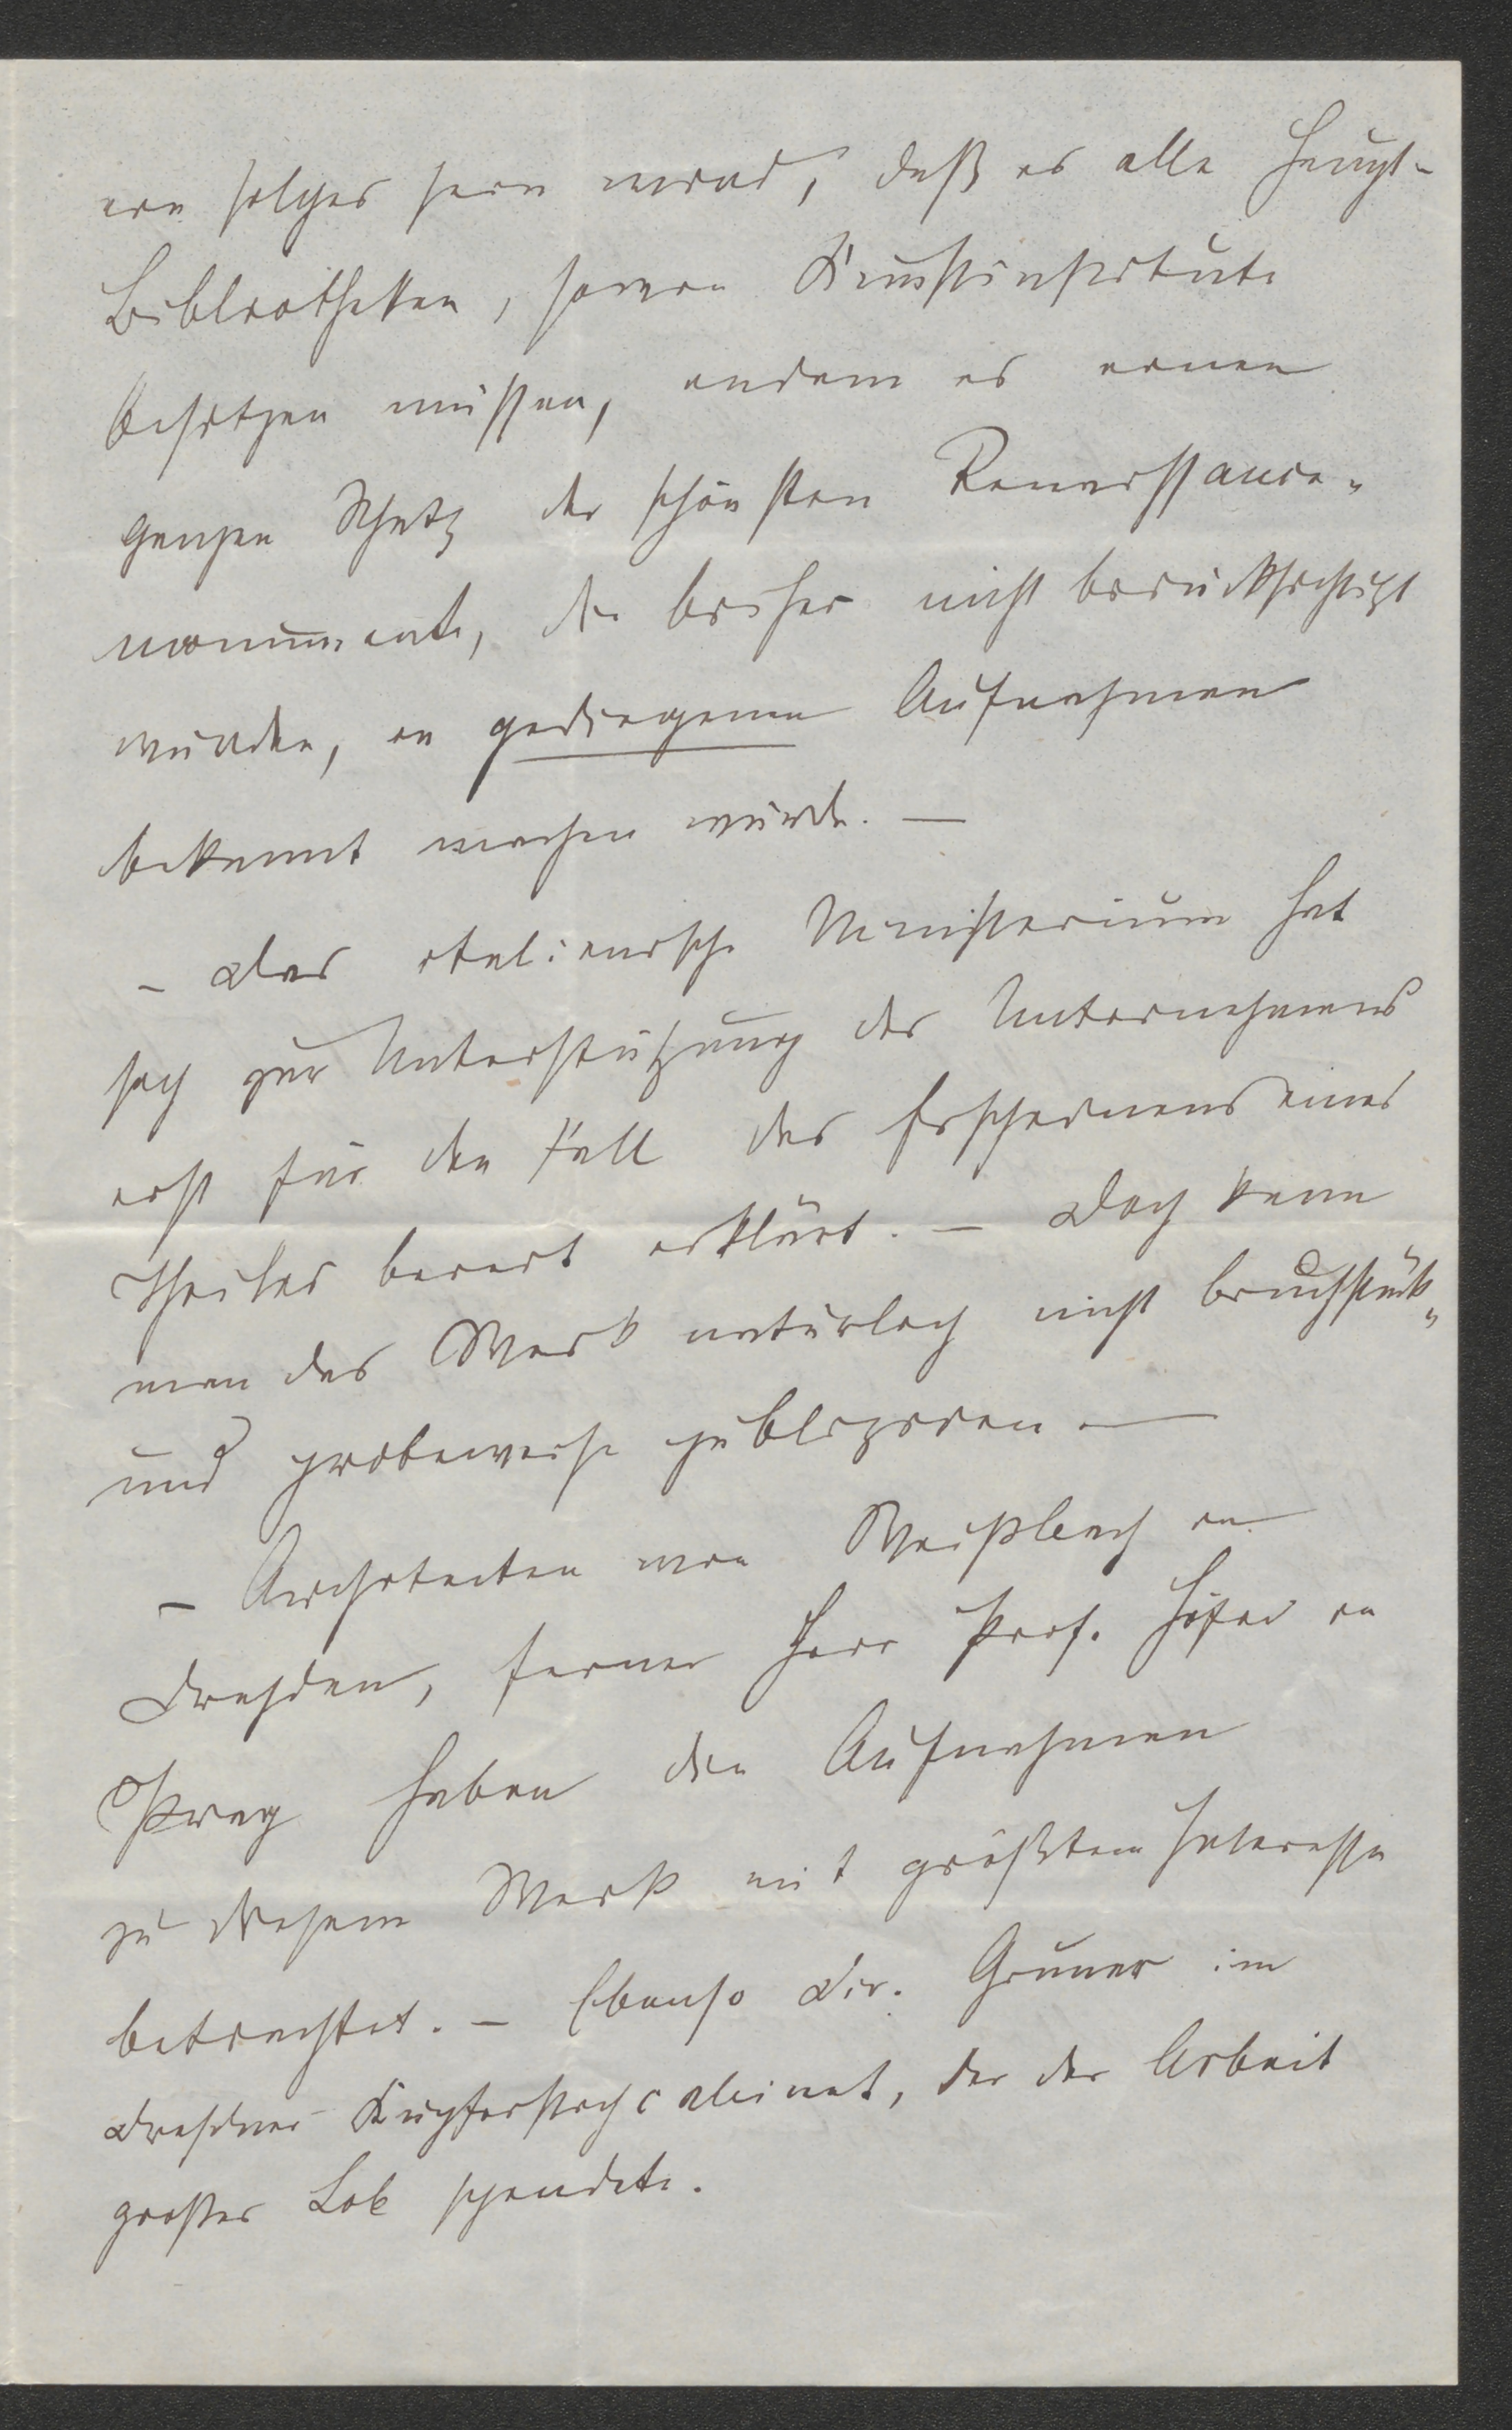 ein solches sein wird, daß es alle Haupt-
Bibliotheken, sowie Kunstinstitute
besitzen müssen, indem es einen
ganzen Schatz der schönsten Renaissance-
monumente, die bisher nicht berücksichtigt
wurden, in gediegenen Aufnahmen
bekannt machen würde. —
– Das italienische Ministerium hat
sich zur Unterstützung des Unternehmens
erst für den Fall des Erscheinens eines
Theiles bereit erklärt. — Doch kann
man das Werk natürlich nicht bruchstück-
und probeweise publiziren —
– Architecten wie Weißbach in
Dresden, ferner Herr Prof. in
Prag haben die Aufnahmen
zu diesem Werk mit größtem Interesse
betrachtet. – Ebenso Dir. Gruner im
Dresdner Kupferstichcabinet, der der Arbeit
großes Lob spendete.